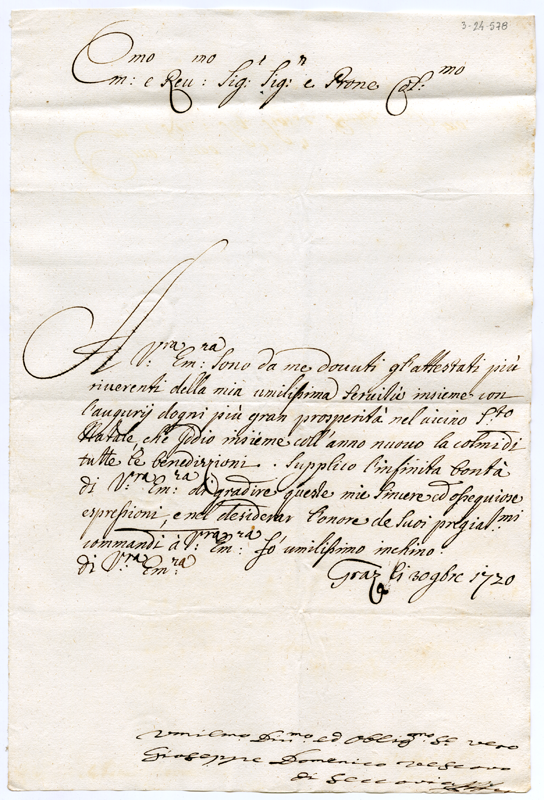 3-24-578
Em:mo e Reu:mo Sig:r Sig:n e Prone Col:mo
A V:ra Em:ra Sono da me douuti gl'attestati più
riuerenti della mia umilissima seruitù insieme con
l'augurij d'ogni più gran prosperità nel vicino S:to
Natale, che Iddio insieme coll'anno nuouo la colmi di
tutte le benedizzioni. Supplico l'infinita bontà
di V:ra Em:ra di gradire queste mie sincere ed osseguiose
espressioni, e nel desiderar l'onore de Suoi pregia:mi
commandi à V:ra Em:ra fò umilissimo inchino
di V:ra Em:ra
Graz li 30 9bre 1720
Umilmo Diu:mo ed Oblig:mo Sr. vero
Giuseppe Domenico Vescovo
di Seccovia